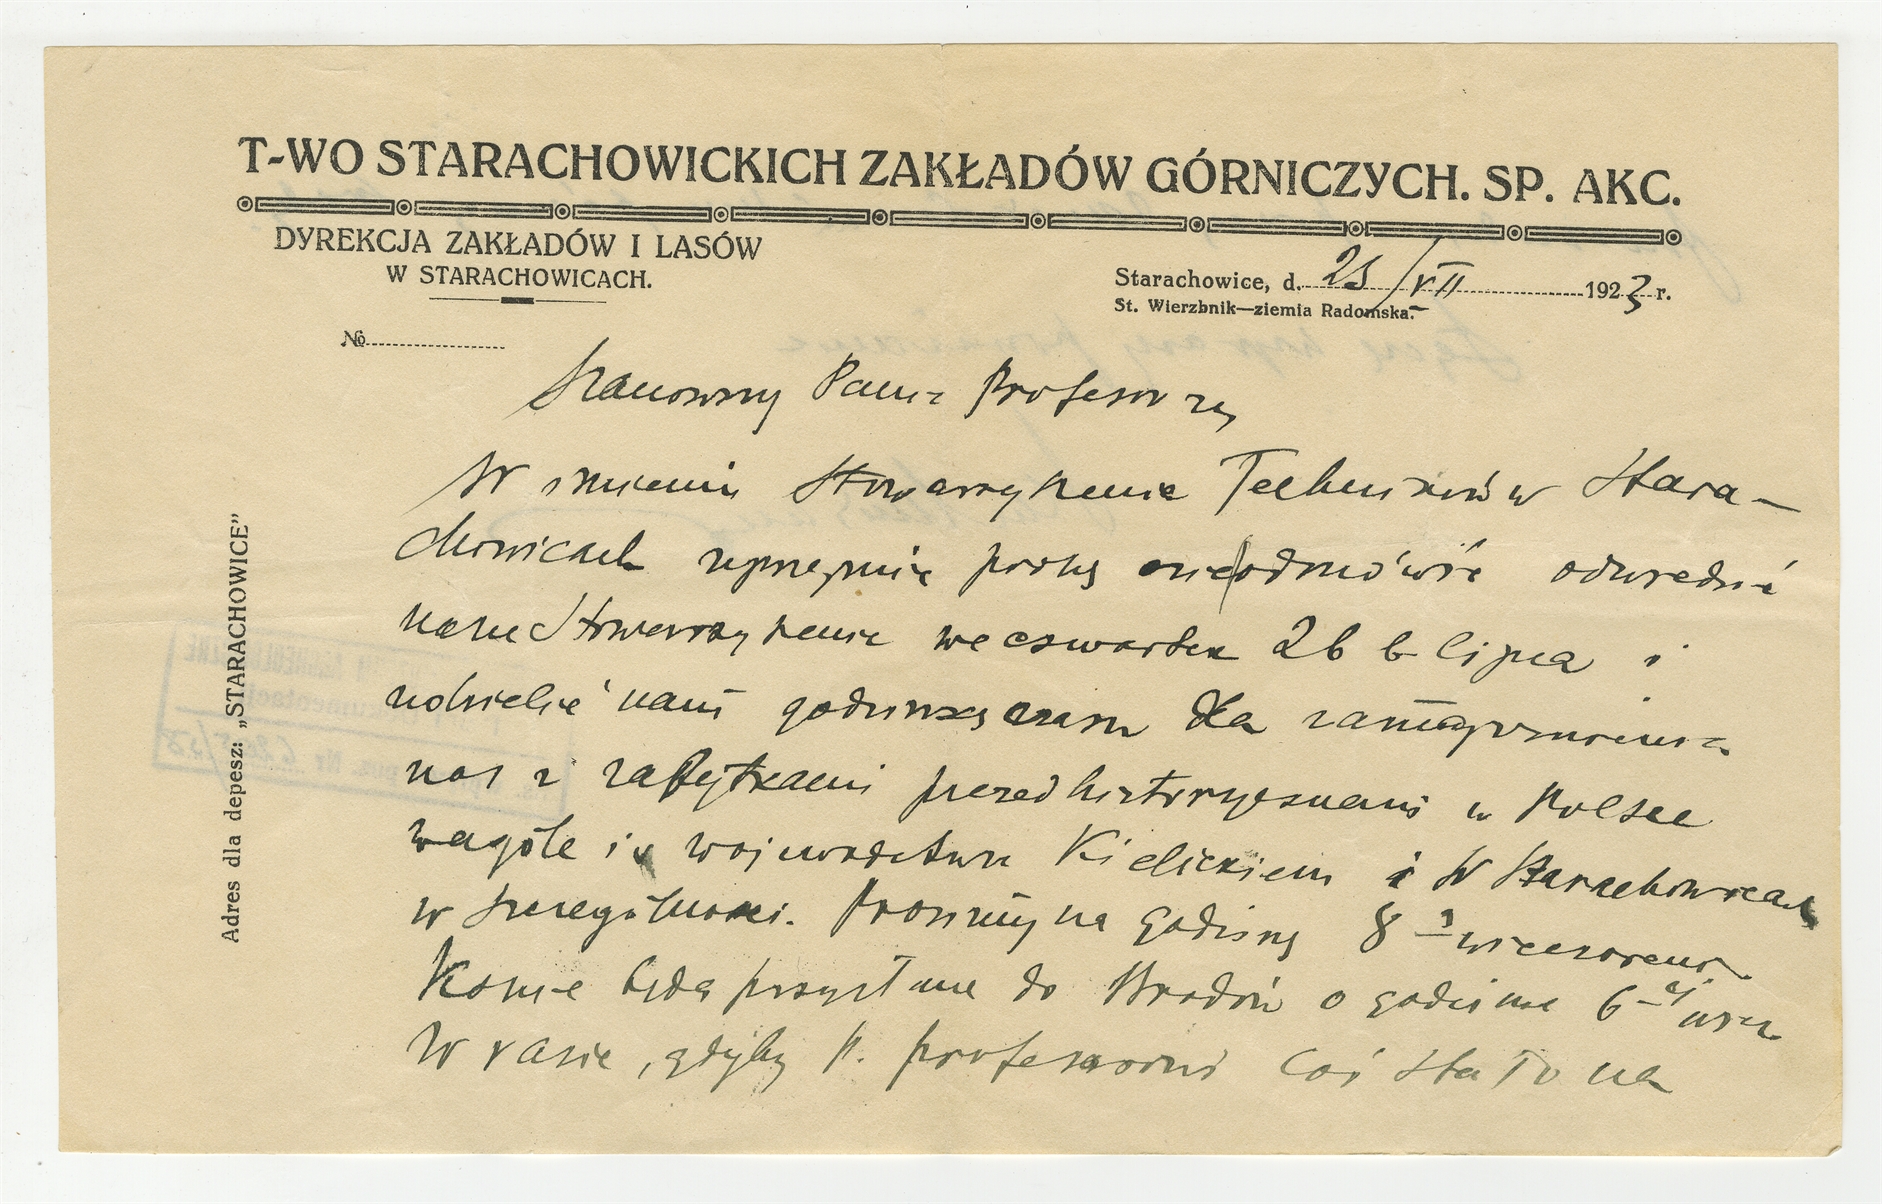 T-WO STARACHOWICKICH ZAKŁADÓW GÓRNICZYCH. SP. AKC.
DYREKCJA ZAKŁADÓW I LASÓW
W STARACHOWICACH.
Starachowice, d. 25/VII 1923 r.
St. Wierzbnik—ziemia Radomska.
№
Adres dla depesz: „STARACHOWICE”
Szanowny Panie Profesorze,
W imieniu Stowarzyszenia Techników w Stara-
chowicach uprzejmie proszę nie odmówić odwiedzić
nasze Stowarzyszenie we czwartek 26 b lipca i
udzielić nam godzinkę czasu dla zaznajomienia
nas z zabytkami przedhistorycznemi w Polsce
wogóle i w województwie Kieleckiem i w Starachowicach
w szczególności. Prosimy na godzinę 8 wieczorem.
Konie będą przysłane do Brodów o godzinie 6-ej wiecz.
W razie, gdyby p. profesorowi coś stało na